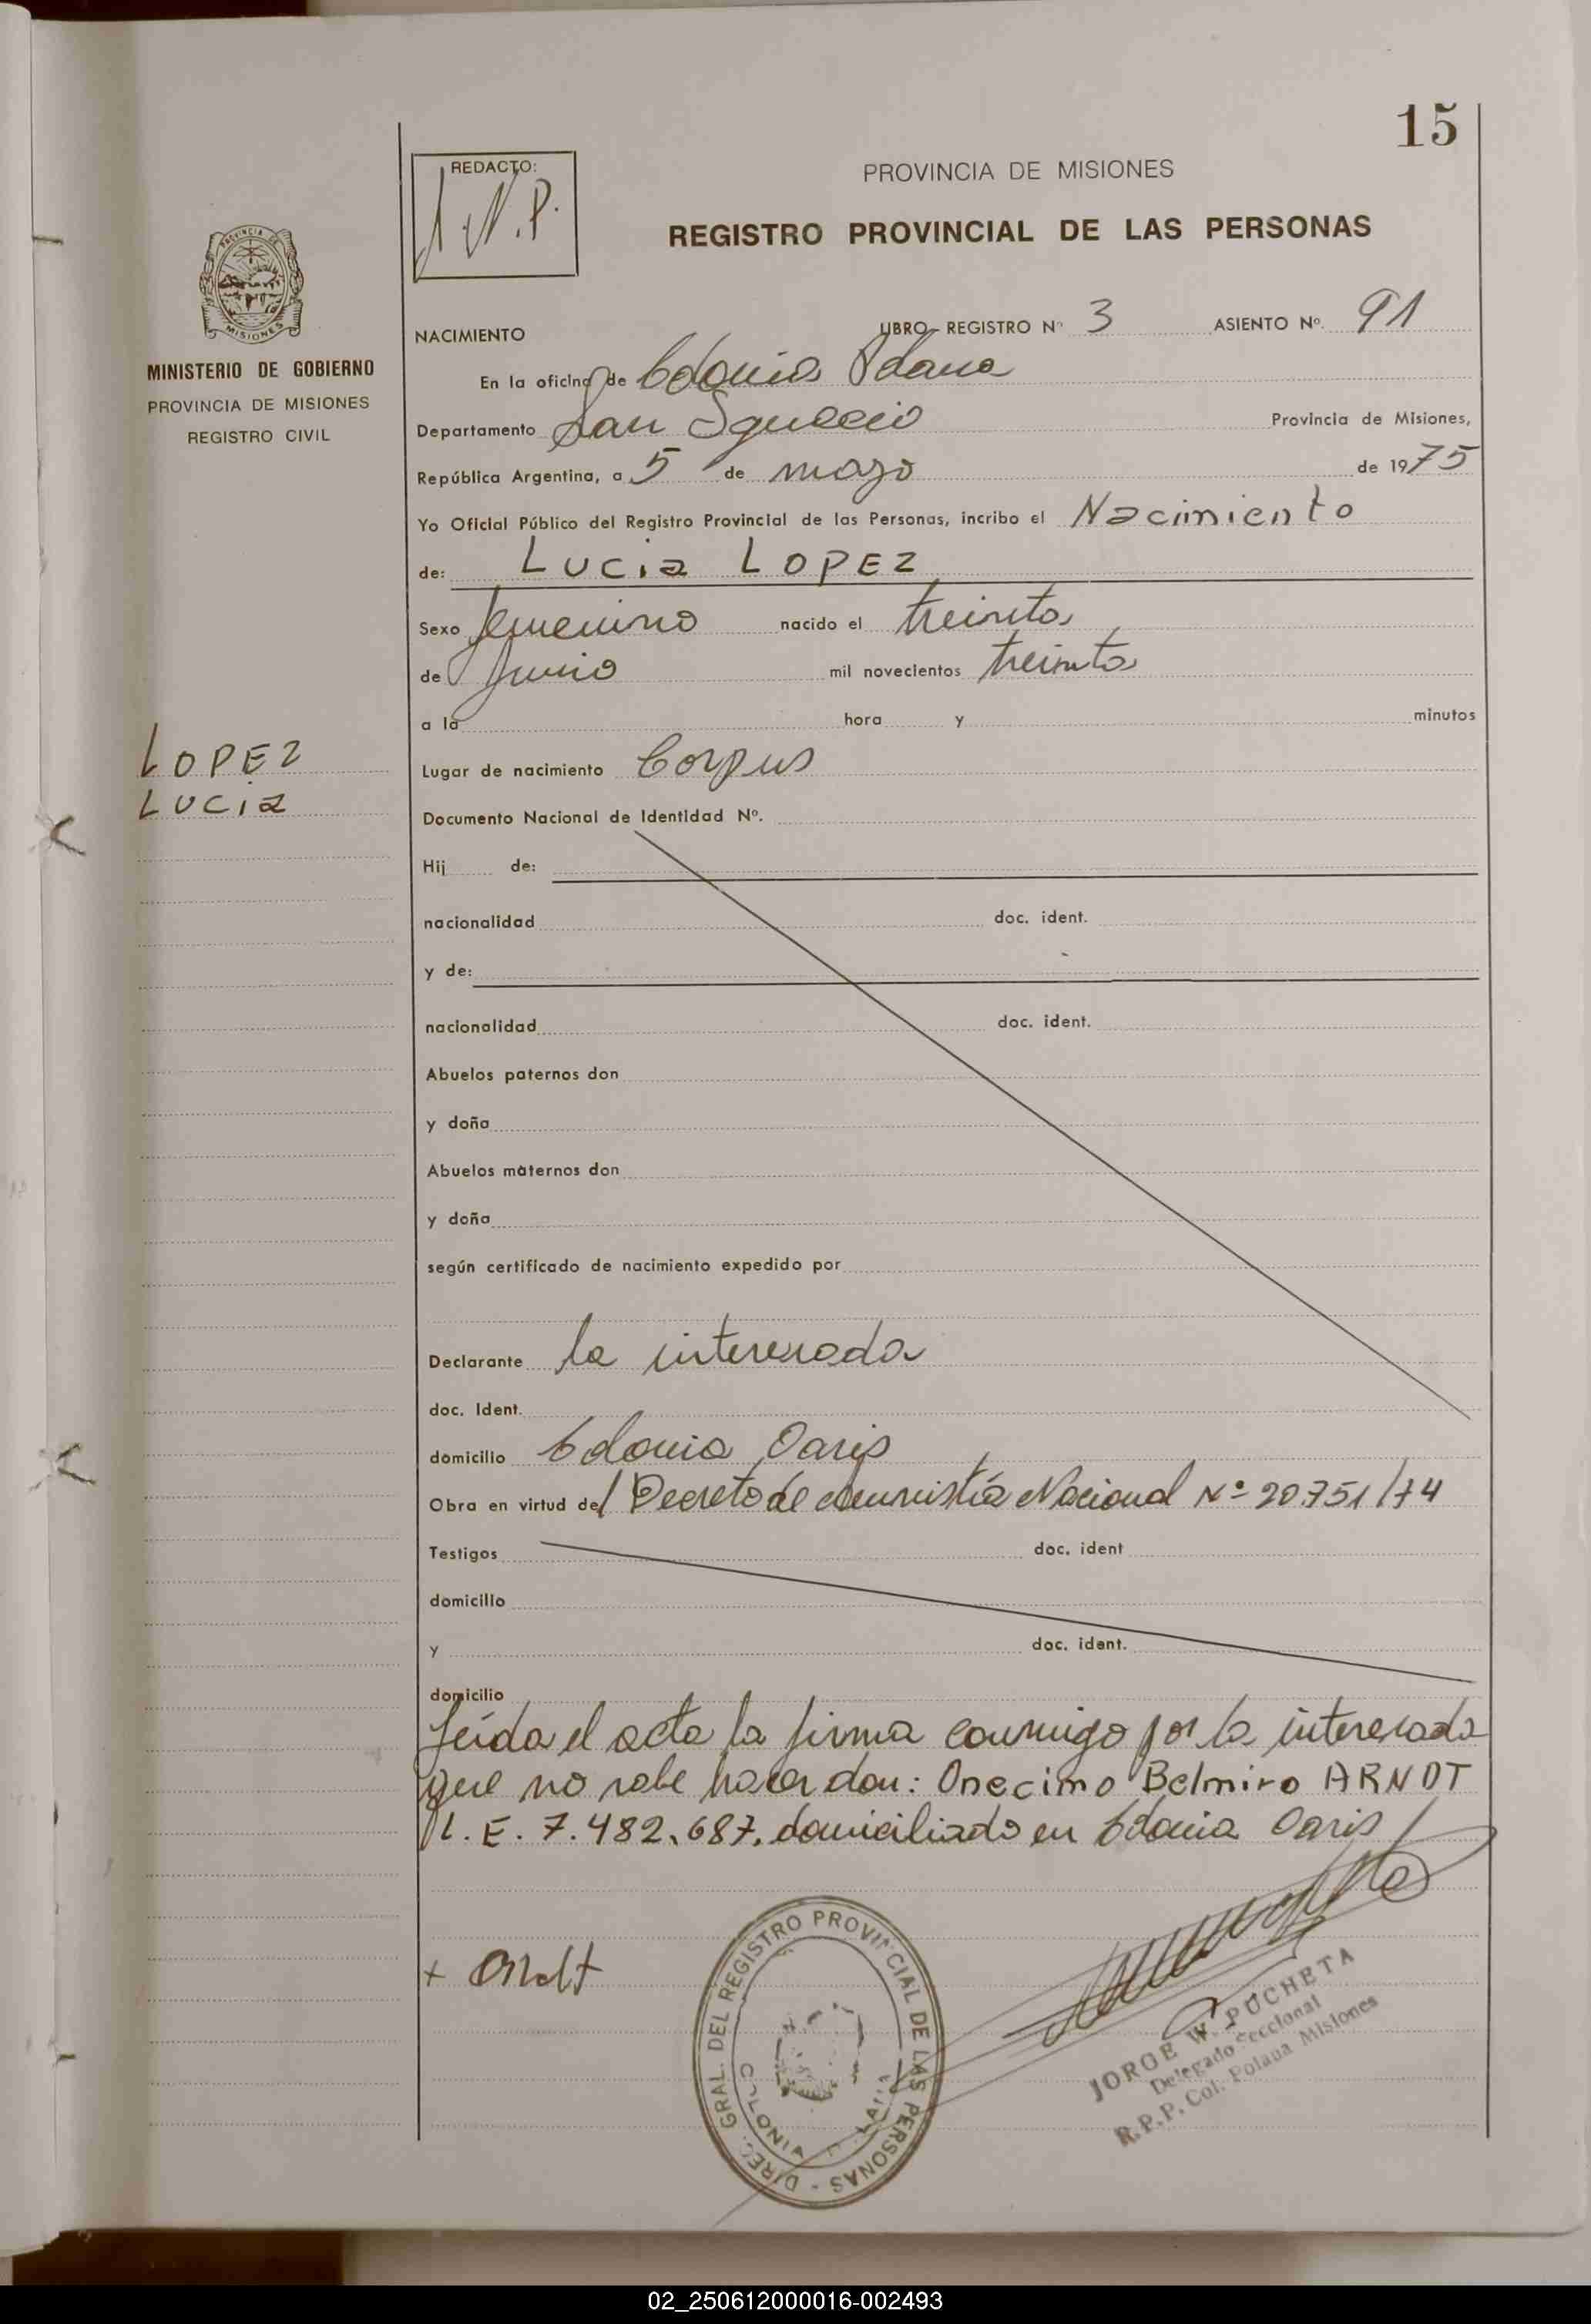 15
REDACTO:
N.P.
PROVINCIA DE MISIONES
REGISTRO PROVINCIAL DE LAS PERSONAS
PROVINCIA DE
MISIONES
MINISTERIO DE GOBIERNO
PROVINCIA DE MISIONES
REGISTRO CIVIL
NACIMIENTO LIBRO - REGISTRO Nº 3 ASIENTO Nº. 91
En la oficina de Colonia Polana
Departamento San Ignacio Provincia de Misiones,
República Argentina, a 5 de mayo de 1975
Yo Oficial Público del Registro Provincial de las Personas, incribo el Nacimiento
de: Lucia LOPEZ
Sexo femenino nacido el treinta
de Junio mil novecientos treinta
a la hora y minutos
LOPEZ
Lucia
Lugar de nacimiento Corpus
Documento Nacional de Identidad Nº.
Hij de:
nacionalidad doc. ident.
y de:
nacionalidad doc. ident.
Abuelos paternos don
y doña
Abuelos maternos don
y doña
según certificado de nacimiento expedido por
Declarante la interesada
doc. Ident.
domicilio Colonia Oasis
Obra en virtud del Decreto de Amnistía Nacional Nº 20.751/74
Testigos doc. ident
domicilio
y doc. ident.
domicilio
Leída el acta la firma conmigo por la interesada
que no sabe hacer don: Onecimo Belmiro ARNDT
L.E. 7.482.687. domiciliado en Colonia Oasis
+ Arndt
DIREC. GRAL. DEL REGISTRO PROVINCIAL DE LAS PERSONAS -
COLONIA
JORGE W. PUCHETA
Delegado Seccional
R.P.P. Col. Polana Misiones
02_250612000016-002493